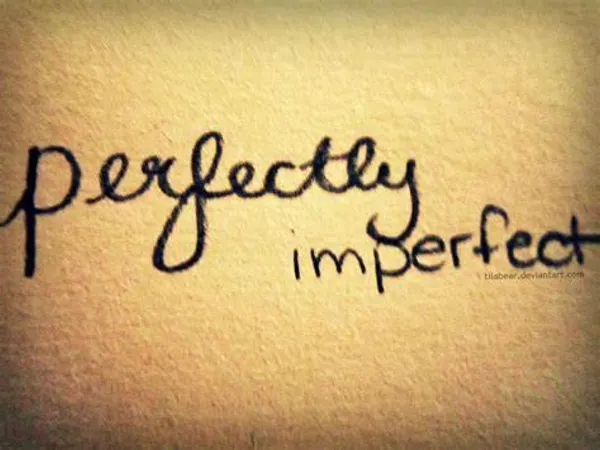 perfectly
imperfect
tiisbear.deviantart.com